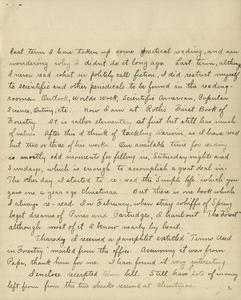 Last term I have taken up some practical reading, and am
wondering why I didn't do it long ago. Last term, although
I never read what is politely call fiction, I did restrict myself
to scientific and other periodicals to be found in the reading-
rooms. Outlook, Worlds Work, Scientific American, Popular
Science, Outing, etc. Now I am at Roth's First Book of
Forestry. It is rather elementary, at first but still has much
of value. After this I think of tackling Darwin, as I have read
but two or three of his works. Our available time for reading
is mostly odd moments for filling in, Saturday nights and
Sundays, which is enough to accomplish a good deal in.
The other day I started to re-read the Simple Life which you
gave me a year ago Christmas. But there is one book which
I always re-read. In February, when stray whiffs of Spring
beget dreams of Pines and Partridges, I haunt "The Forest"
although most of it I know nearly by heart.
Thursday I received a pamphlet entitled "Terms Used
in Forestry" mailed from the office. Assuming it was from
Papa, thank him for me. I have found it very interesting.
I enclose receipted term bill. Still have lots of money
left from the two checks received at Christmas.